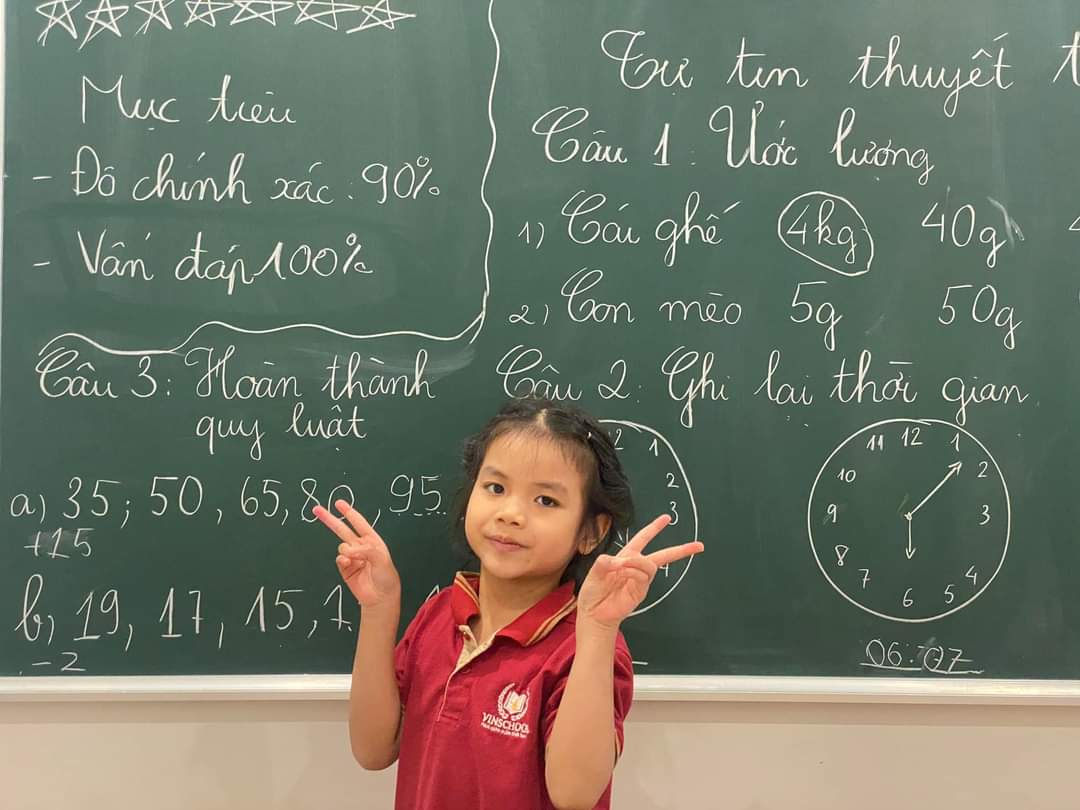 Mục tiêu
- Độ chính xác: 90%
- Vấn đáp 100%
Câu 3: Hoàn thành
quy luật
a) 35; 50, 65, 80, 95
+15
b) 19, 17, 15, 1
-2
Tự tin thuyết t
Câu 1: Ước lượng
1) Cái ghế 4kg 40g 4
2) Con mèo 5g 50g
Câu 2: Ghi lại thời gian
12 1 2 3 4
11 12 1 2 3 4 5 6 7 8 9 10
06:07
VINSCHOOL